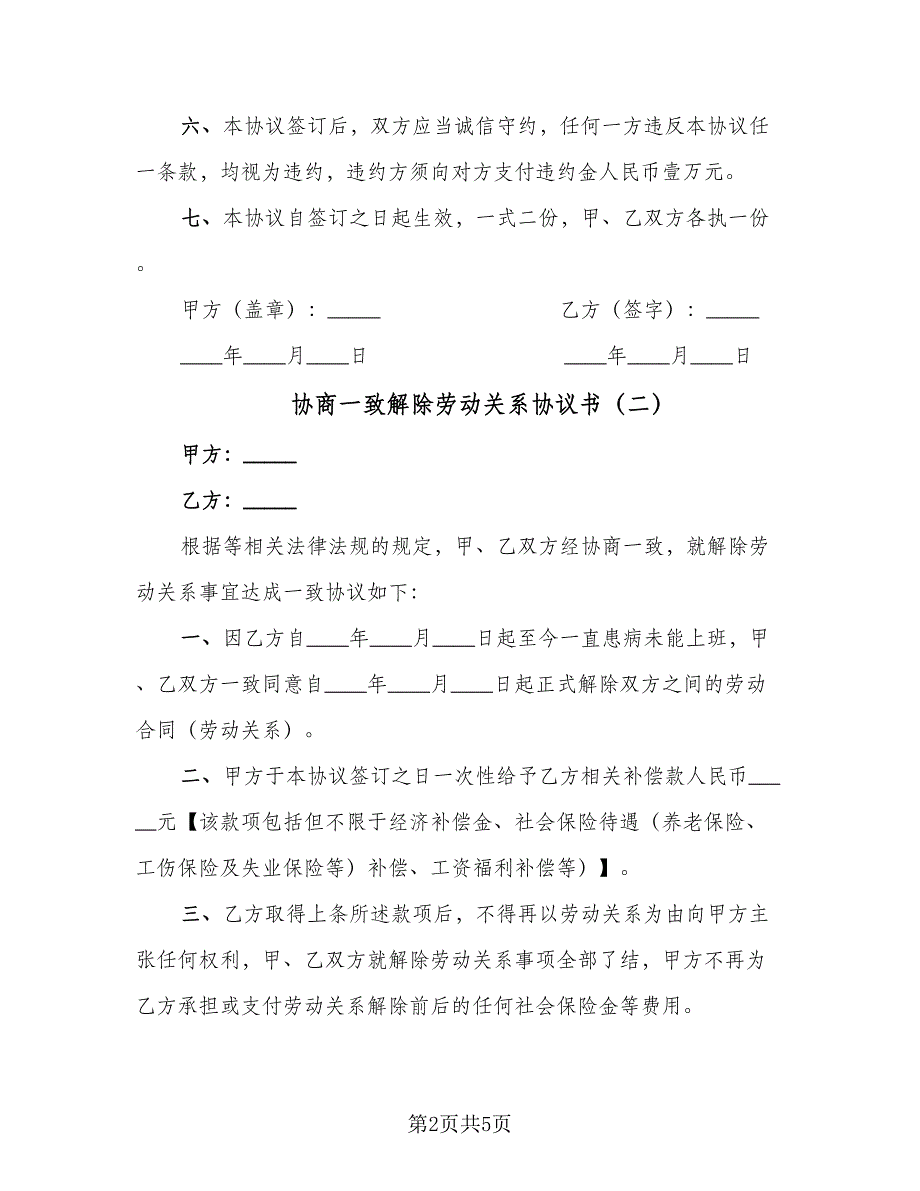 六、本协议签订后，双方应当诚信守约，任何一方违反本协议任
一条款，均视为违约，违约方须向对方支付违约金人民币壹万元。
七、本协议自签订之日起生效，一式二份，甲、乙双方各执一份
。
甲方（盖章）：_____ 乙方（签字）：_____
____年____月____日 ____年____月____日
协商一致解除劳动关系协议书（二）
甲方：_____
乙方：_____
根据等相关法律法规的规定，甲、乙双方经协商一致，就解除劳
动关系事宜达成一致协议如下：
一、因乙方自____年____月____日起至今一直患病未能上班，甲
、乙双方一致同意自____年____月____日起正式解除双方之间的劳动
合同（劳动关系）。
二、甲方于本协议签订之日一次性给予乙方相关补偿款人民币___
__元【该款项包括但不限于经济补偿金、社会保险待遇（养老保险、
工伤保险及失业保险等）补偿、工资福利补偿等）】。
三、乙方取得上条所述款项后，不得再以劳动关系为由向甲方主
张任何权利，甲、乙双方就解除劳动关系事项全部了结，甲方不再为
乙方承担或支付劳动关系解除前后的任何社会保险金等费用。
第2页共5页